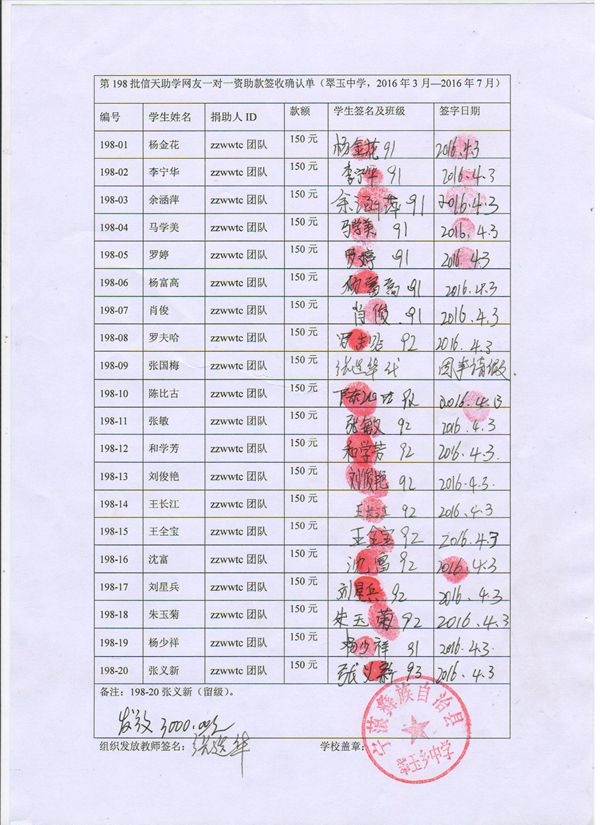 第 198 批信天助学网友一对一资助款签收确认单（翠玉中学，2016 年 3 月—2016 年 7 月）
编号 学生姓名 捐助人 ID 款额 学生签名及班级 签字日期
198-01 杨金花 zzwwtc 团队 150 元 杨金花 91 2016.4.3
198-02 李宁华 zzwwtc 团队 150 元 李宁华 91 2016.4.3
198-03 余涵萍 zzwwtc 团队 150 元 余涵萍 91 2016.4.3
198-04 马学美 zzwwtc 团队 150 元 马学美 91 2016.4.3
198-05 罗婷 zzwwtc 团队 150 元 罗婷 91 2016.4.3
198-06 杨富高 zzwwtc 团队 150 元 杨富高 91 2016.4.3
198-07 肖俊 zzwwtc 团队 150 元 肖俊 91 2016.4.3
198-08 罗夫哈 zzwwtc 团队 150 元 92 2016.4.3
198-09 张国梅 zzwwtc 团队 150 元 代 因事请假.
198-10 陈比古 zzwwtc 团队 150 元 陈比古 92 2016.4.3
198-11 张敏 zzwwtc 团队 150 元 张敏 92 2016.4.3
198-12 和学芳 zzwwtc 团队 150 元 和学芳 92 2016.4.3
198-13 刘俊艳 zzwwtc 团队 150 元 刘俊艳 92 2016.4.3.
198-14 王长江 zzwwtc 团队 150 元 王长江 92 2016.4.3
198-15 王全宝 zzwwtc 团队 150 元 王全宝 92 2016.4.3
198-16 沈富 zzwwtc 团队 150 元 沈富 92 2016.4.3
198-17 刘星兵 zzwwtc 团队 150 元 刘星兵 92 2016.4.3
198-18 朱玉菊 zzwwtc 团队 150 元 朱玉菊 92 2016.4.3
198-19 杨少祥 zzwwtc 团队 150 元 杨少祥 91 2016.4.3
198-20 张义新 zzwwtc 团队 150 元 张义新 93 2016.4.3
备注：198-20 张义新（留级）。
发放 3000.00元
组织发放教师签名： 学校盖章：
宁蒗彝族自治县
翠玉乡中学